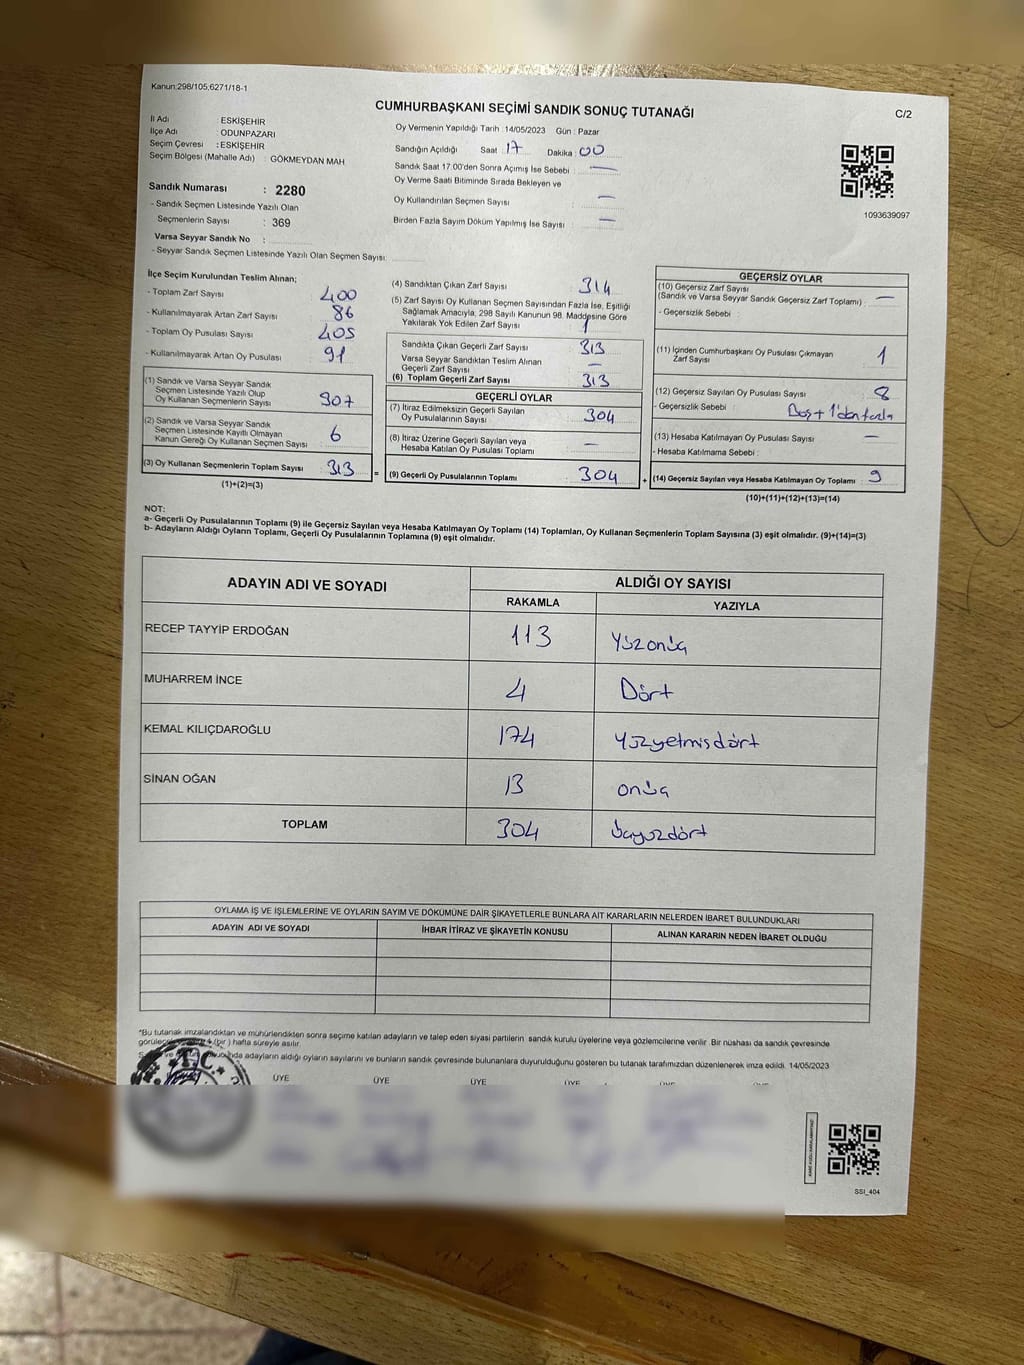 Kanun:298/105;6271/18-1
CUMHURBAŞKANI SEÇİMİ SANDIK SONUÇ TUTANAĞI
C/2
İl Adı : ESKİŞEHİR
İlçe Adı : ODUNPAZARI
Seçim Çevresi : ESKİŞEHİR
Seçim Bölgesi (Mahalle Adı) : GÖKMEYDAN MAH
Sandık Numarası : 2280
- Sandık Seçmen Listesinde Yazılı Olan
Seçmenlerin Sayısı : 369
Varsa Seyyar Sandık No :
- Seyyar Sandık Seçmen Listesinde Yazılı Olan Seçmen Sayısı:
Oy Vermenin Yapıldığı Tarih :14/05/2023 Gün : Pazar
Sandığın Açıldığı Saat : 17 Dakika : 00
Sandık Saat 17:00'den Sonra Açımış İse Sebebi : —
Oy Verme Saati Bitiminde Sırada Bekleyen ve
Oy Kullandırılan Seçmen Sayısı : —
Birden Fazla Sayım Döküm Yapılmış İse Sayısı : —
1093639097
İlçe Seçim Kurulundan Teslim Alınan;
- Toplam Zarf Sayısı : 400
- Kullanılmayarak Artan Zarf Sayısı : 86
- Toplam Oy Pusulası Sayısı : 405
- Kullanılmayarak Artan Oy Pusulası : 91
(1) Sandık ve Varsa Seyyar Sandık
Seçmen Listesinde Yazılı Olup
Oy Kullanan Seçmenlerin Sayısı : 307
(2) Sandık ve Varsa Seyyar Sandık
Seçmen Listesinde Kayıtlı Olmayan
Kanun Gereği Oy Kullanan Seçmen Sayısı : 6
(3) Oy Kullanan Seçmenlerin Toplam Sayısı : 313 =
(1)+(2)=(3)
(4) Sandıktan Çıkan Zarf Sayısı : 314
(5) Zarf Sayısı Oy Kullanan Seçmen Sayısından Fazla İse, Eşitliği
Sağlamak Amacıyla, 298 Sayılı Kanunun 98. Maddesine Göre
Yakılarak Yok Edilen Zarf Sayısı : 1
Sandıkta Çıkan Geçerli Zarf Sayısı : 313
Varsa Seyyar Sandıktan Teslim Alınan
Geçerli Zarf Sayısı : —
(6) Toplam Geçerli Zarf Sayısı : 313
GEÇERLİ OYLAR
(7) İtiraz Edilmeksizin Geçerli Sayılan
Oy Pusulalarının Sayısı : 304
(8) İtiraz Üzerine Geçerli Sayılan veya
Hesaba Katılan Oy Pusulası Toplamı : —
(9) Geçerli Oy Pusulalarının Toplamı : 304 +
GEÇERSİZ OYLAR
(10) Geçersiz Zarf Sayısı
(Sandık ve Varsa Seyyar Sandık Geçersiz Zarf Toplamı) : —
- Geçersizlik Sebebi :
(11) İçinden Cumhurbaşkanı Oy Pusulası Çıkmayan
Zarf Sayısı : 1
(12) Geçersiz Sayılan Oy Pusulası Sayısı : 8
- Geçersizlik Sebebi : Boş + 1'den fazla
(13) Hesaba Katılmayan Oy Pusulası Sayısı : —
- Hesaba Katılmama Sebebi :
(14) Geçersiz Sayılan veya Hesaba Katılmayan Oy Toplamı : 9
(10)+(11)+(12)+(13)=(14)
NOT:
a- Geçerli Oy Pusulalarının Toplamı (9) ile Geçersiz Sayılan veya Hesaba Katılmayan Oy Toplamı (14) Toplamları, Oy Kullanan Seçmenlerin Toplam Sayısına (3) eşit olmalıdır. (9)+(14)=(3)
b- Adayların Aldığı Oyların Toplamı, Geçerli Oy Pusulalarının Toplamına (9) eşit olmalıdır.
ADAYIN ADI VE SOYADI
ALDIĞI OY SAYISI
RAKAMLA YAZIYLA
RECEP TAYYİP ERDOĞAN 113 Yüzonüç
MUHARREM İNCE 4 Dört
KEMAL KILIÇDAROĞLU 174 Yüzyetmisdört
SİNAN OĞAN 13 onüç
TOPLAM 304 üçyüzdört
OYLAMA İŞ VE İŞLEMLERİNE VE OYLARIN SAYIM VE DÖKÜMÜNE DAİR ŞİKAYETLERLE BUNLARA AİT KARARLARIN NELERDEN İBARET BULUNDUKLARI
ADAYIN ADI VE SOYADI İHBAR İTİRAZ VE ŞİKAYETİN KONUSU ALINAN KARARIN NEDEN İBARET OLDUĞU
*Bu tutanak imzalandıktan ve mühürlendikten sonra seçime katılan adayların ve talep eden siyasi partilerin sandık kurulu üyelerine veya gözlemcilerine verilir. Bir nüshası da sandık çevresinde
(bir ) hafta süreyle asılır.
adayların aldığı oyların sayılarını ve bunların sandık çevresinde bulunanlara duyurulduğunu gösteren bu tutanak tarafımızdan düzenlenerek imza edildi. 14/05/2023
T.C.
ÜYE ÜYE ÜYE ÜYE
SSI_404